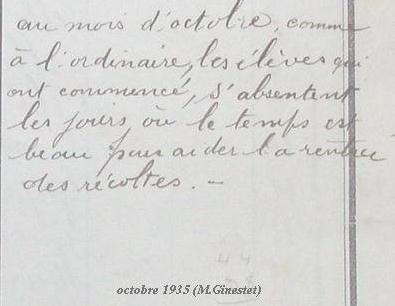 au mois d'octobre, comme
à l'ordinaire, les élèves qui
ont commencé, s'absentent
les jours où le temps est
beau pour aider la rentrée
des récoltes. -
44
octobre 1935 (M.Ginestet)